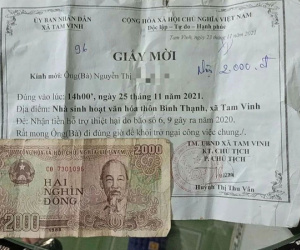 ỦY BAN NHÂN DÂN
XÃ TAM VINH
CỘNG HÒA XÃ HỘI CHỦ NGHĨA VIỆT NAM
Độc lập - Tự do - Hạnh phúc
Tam Vinh, ngày 23 tháng 11 năm 2021
96
GIẤY MỜI
Kính mời: Ông(Bà) Nguyễn Thị
2.000 đ
Đúng vào lúc: 14h00', ngày 25 tháng 11 năm 2021.
Địa điểm: Nhà sinh hoạt văn hóa thôn Bình Thạnh, xã Tam Vinh
Để: Nhận tiền hỗ trợ thiệt hại do bão số 6, 9 gây ra năm 2020.
Rất mong Ông(Bà) đi đúng giờ để khỏi trở ngại công việc chung./.
TM. UBND XÃ TAM VINH
KT. CHỦ TỊCH
P. CHỦ TỊCH
Huỳnh Thị Thu Vân
2000
HAI
NGHÌN
ĐỒNG
2000
1988